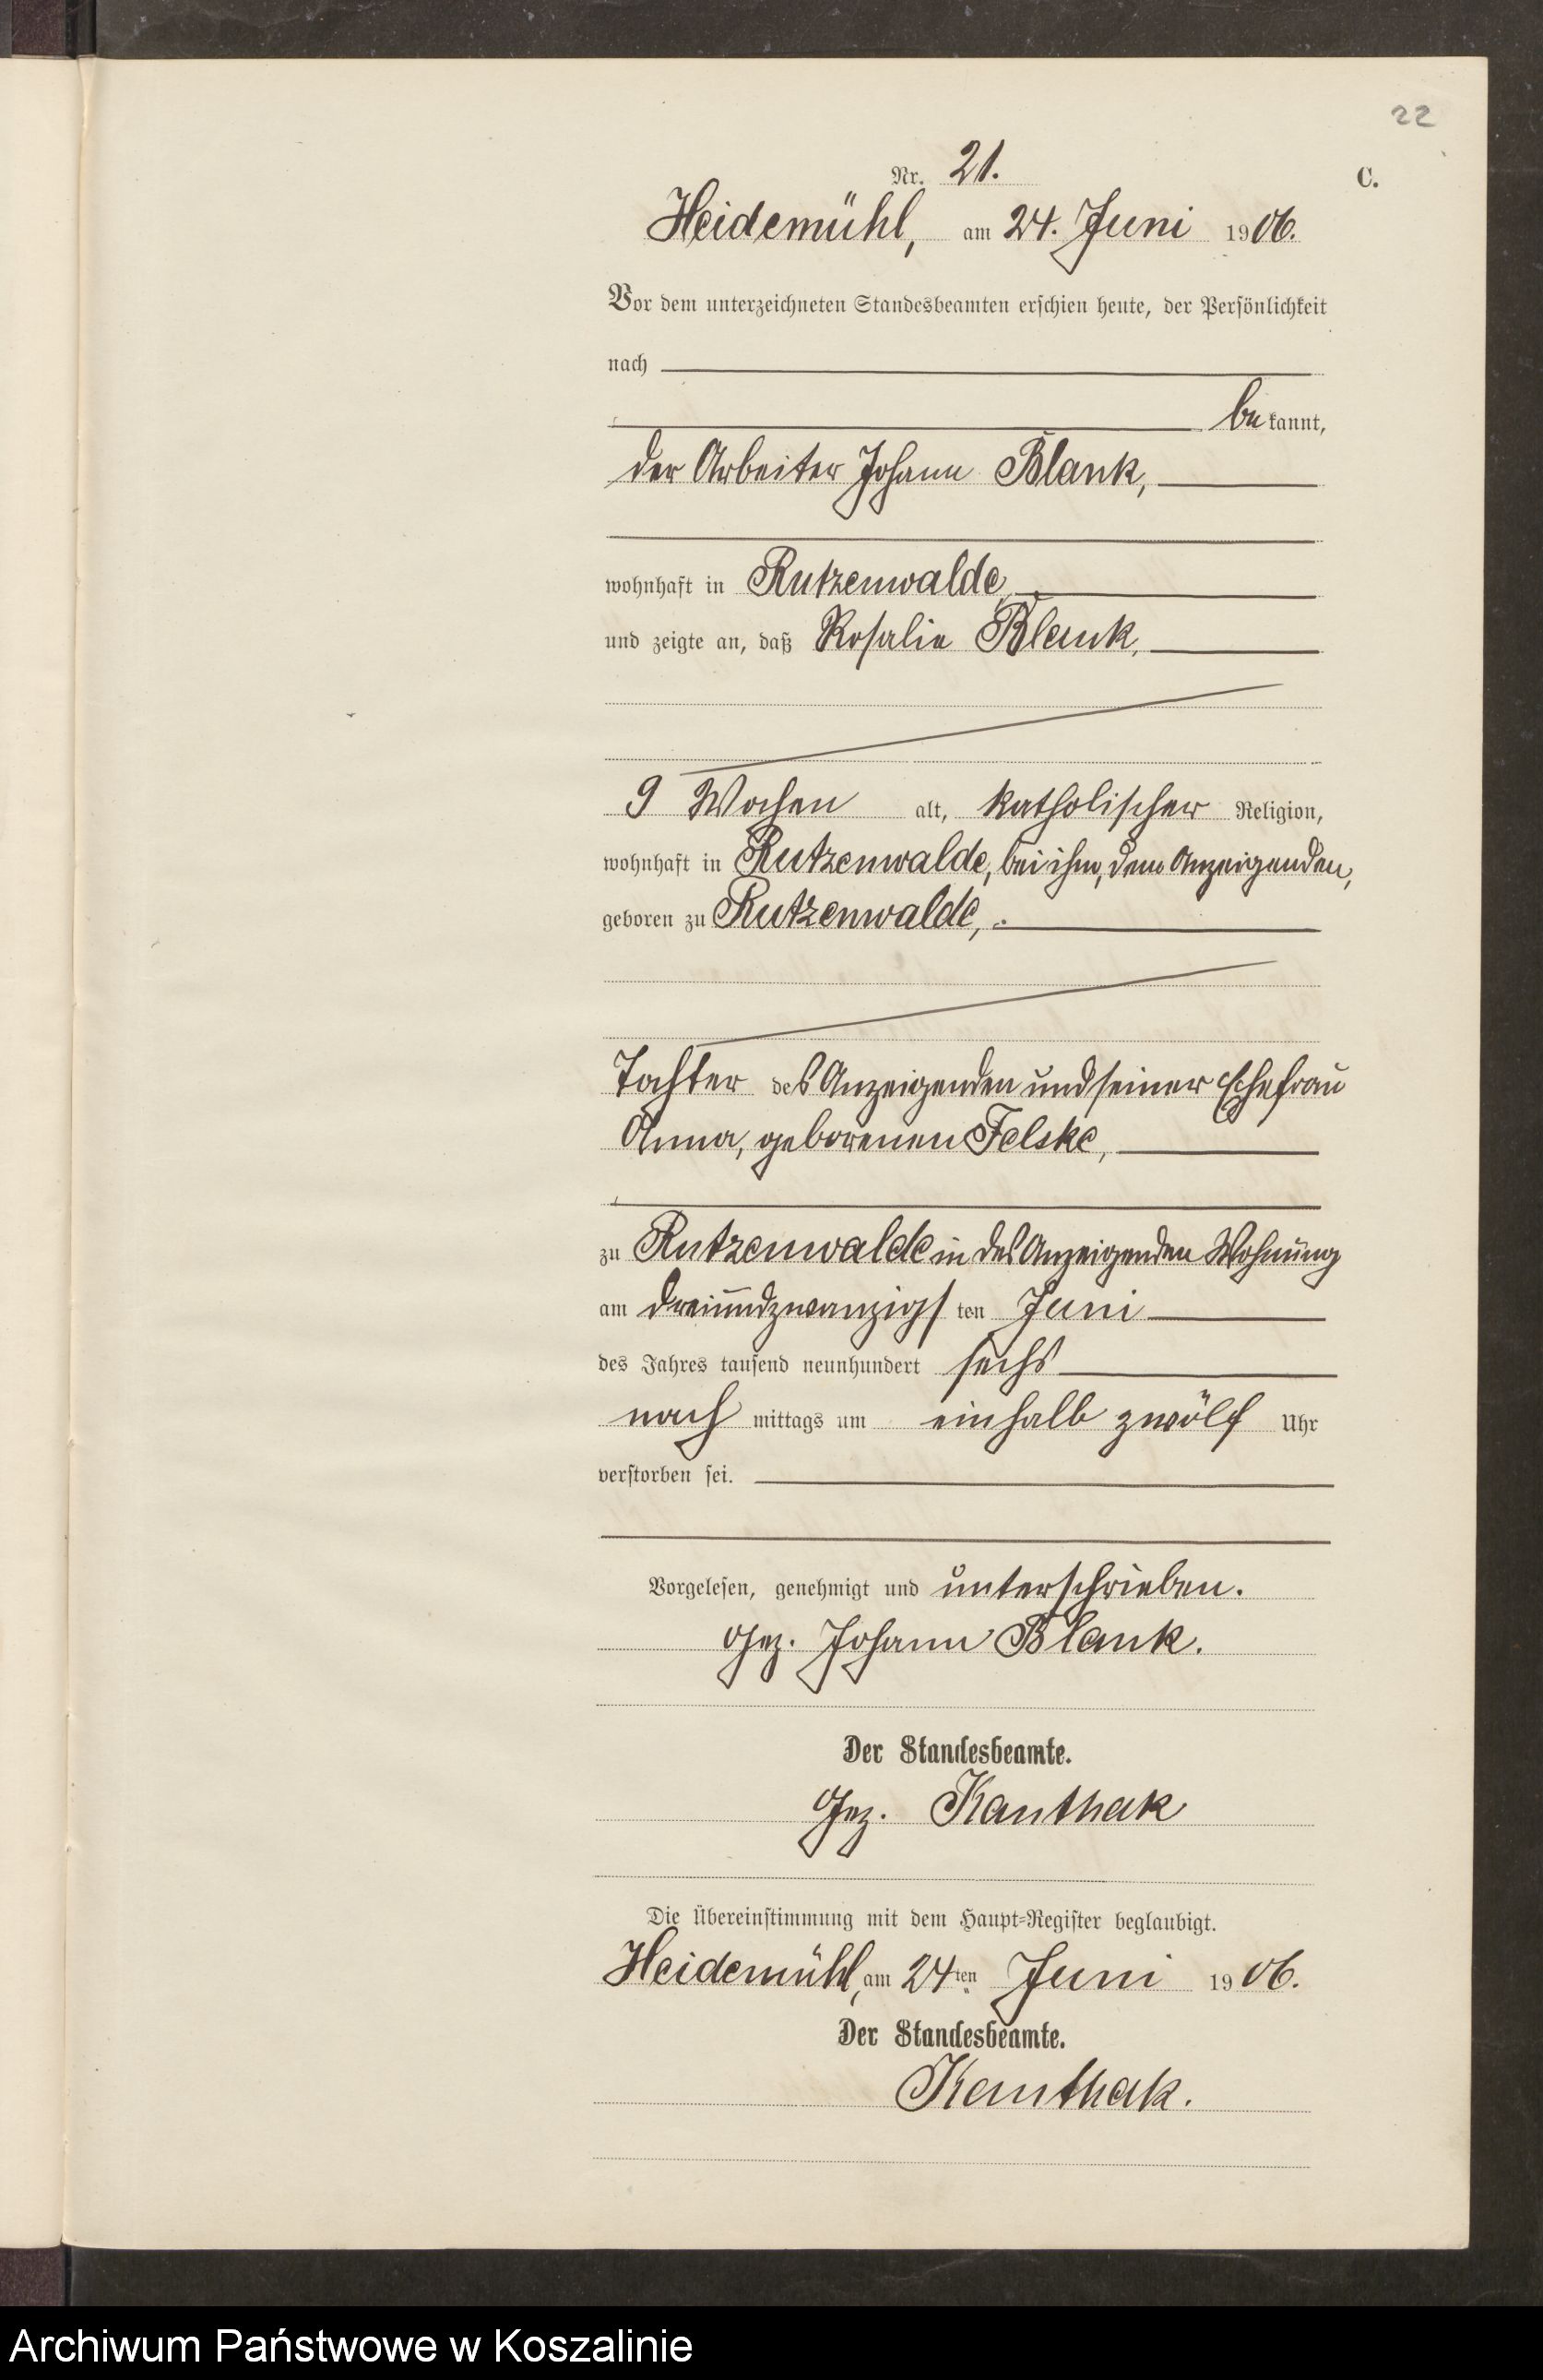 22
Nr. 21.
C.
Heidemühl, am 24. Juni 1906.
Vor dem unterzeichneten Standesbeamten erschien heute, der Persönlichkeit
nach
bekannt,
der Arbeiter Johann Blank,
wohnhaft in Rutzenwalde,
und zeigte an, daß Rosalie Blank,
9 Wochen alt, katholischer Religion,
wohnhaft in Rutzenwalde, bei ihm, dem Anzeigenden,
geboren zu Rutzenwalde,
Tochter des Anzeigenden und seiner Ehefrau
Anna, geborenen Felske,
zu Rutzenwalde in des Anzeigenden Wohnung
am dreiundzwanzigsten Juni
des Jahres tausend neunhundert sechs
nachmittags um einhalb zwölf Uhr
verstorben sei.
Vorgelesen, genehmigt und unterschrieben.
gez. Johann Blank.
Der Standesbeamte.
gez. Kanthak
Die Übereinstimmung mit dem Haupt-Register beglaubigt.
Heidemühl, am 24ten Juni 1906.
Der Standesbeamte.
Kanthak.
Archiwum Państwowe w Koszalinie